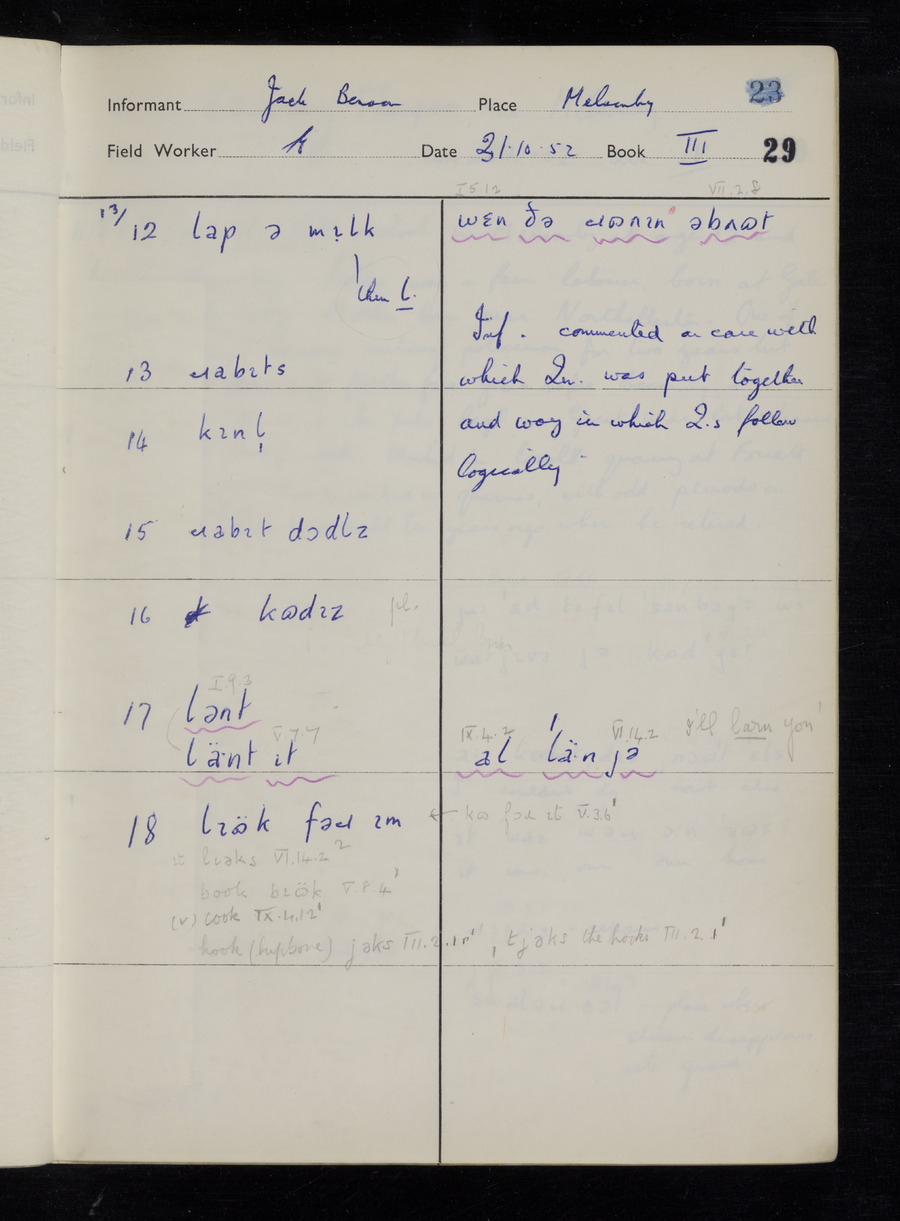 Informant Jack Benson Place Melsonby 23
Field Worker Date 21·10·52 Book III 29
I 5.12 VII.2.8
13/ 12 lap ə mɪ̣lk
then l.
wɛn ðə ɹʊnɪn əbaʊt
13 ɹabɪts
14 kɪnl̩
15 ɹabɪt dɔdlz
16 kʊdɪz pl.
Inf. commented on care with
which Qn. was put together
and way in which Q.s follow
logically
I.9.3
17 lənt
V.7.7
lä·nt ɪt
IX.4.2 VI.14.2 I'll larn you'
al lä·n jə
18 lɪök fəɹ ɪm ← kʊ fəɹ ɪt V.3.6'
lɪəks VI.14.2
book bɪök V.8.4'
(v) cook IX.4.12'
hook (hipbone) jəks III.2.1', tjəks the hocks III.2.1'